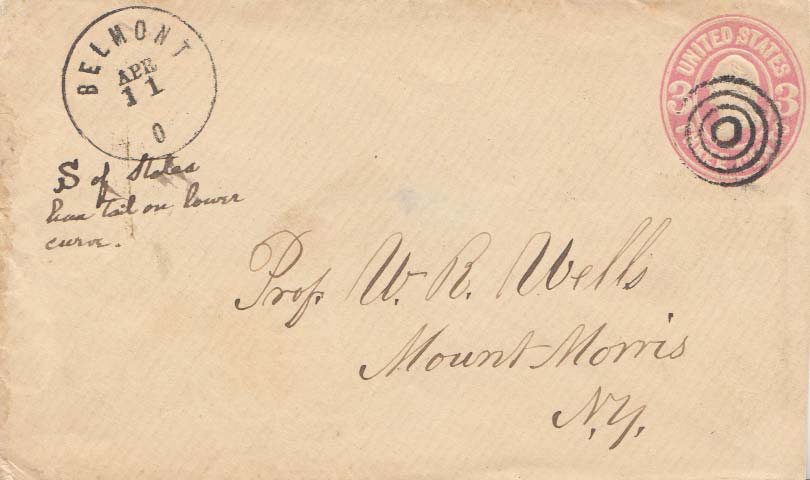 BELMONT
APR
11
O
UNITED STATES
3 3
THREE CENTS
S of States
has tail on lower
curve.
Prof. W. R. Wells
Mount Morris
N.Y.